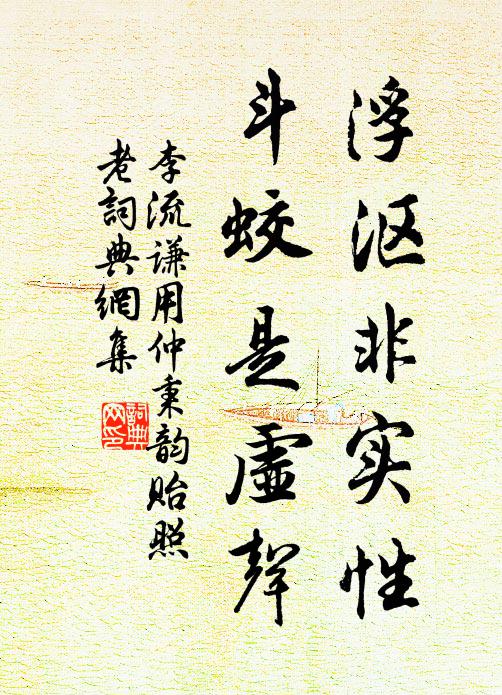 浮沤非实性
斗蛟是虚聲
李流谦用仲秉韵贻照
老詞典網集
詞典网印